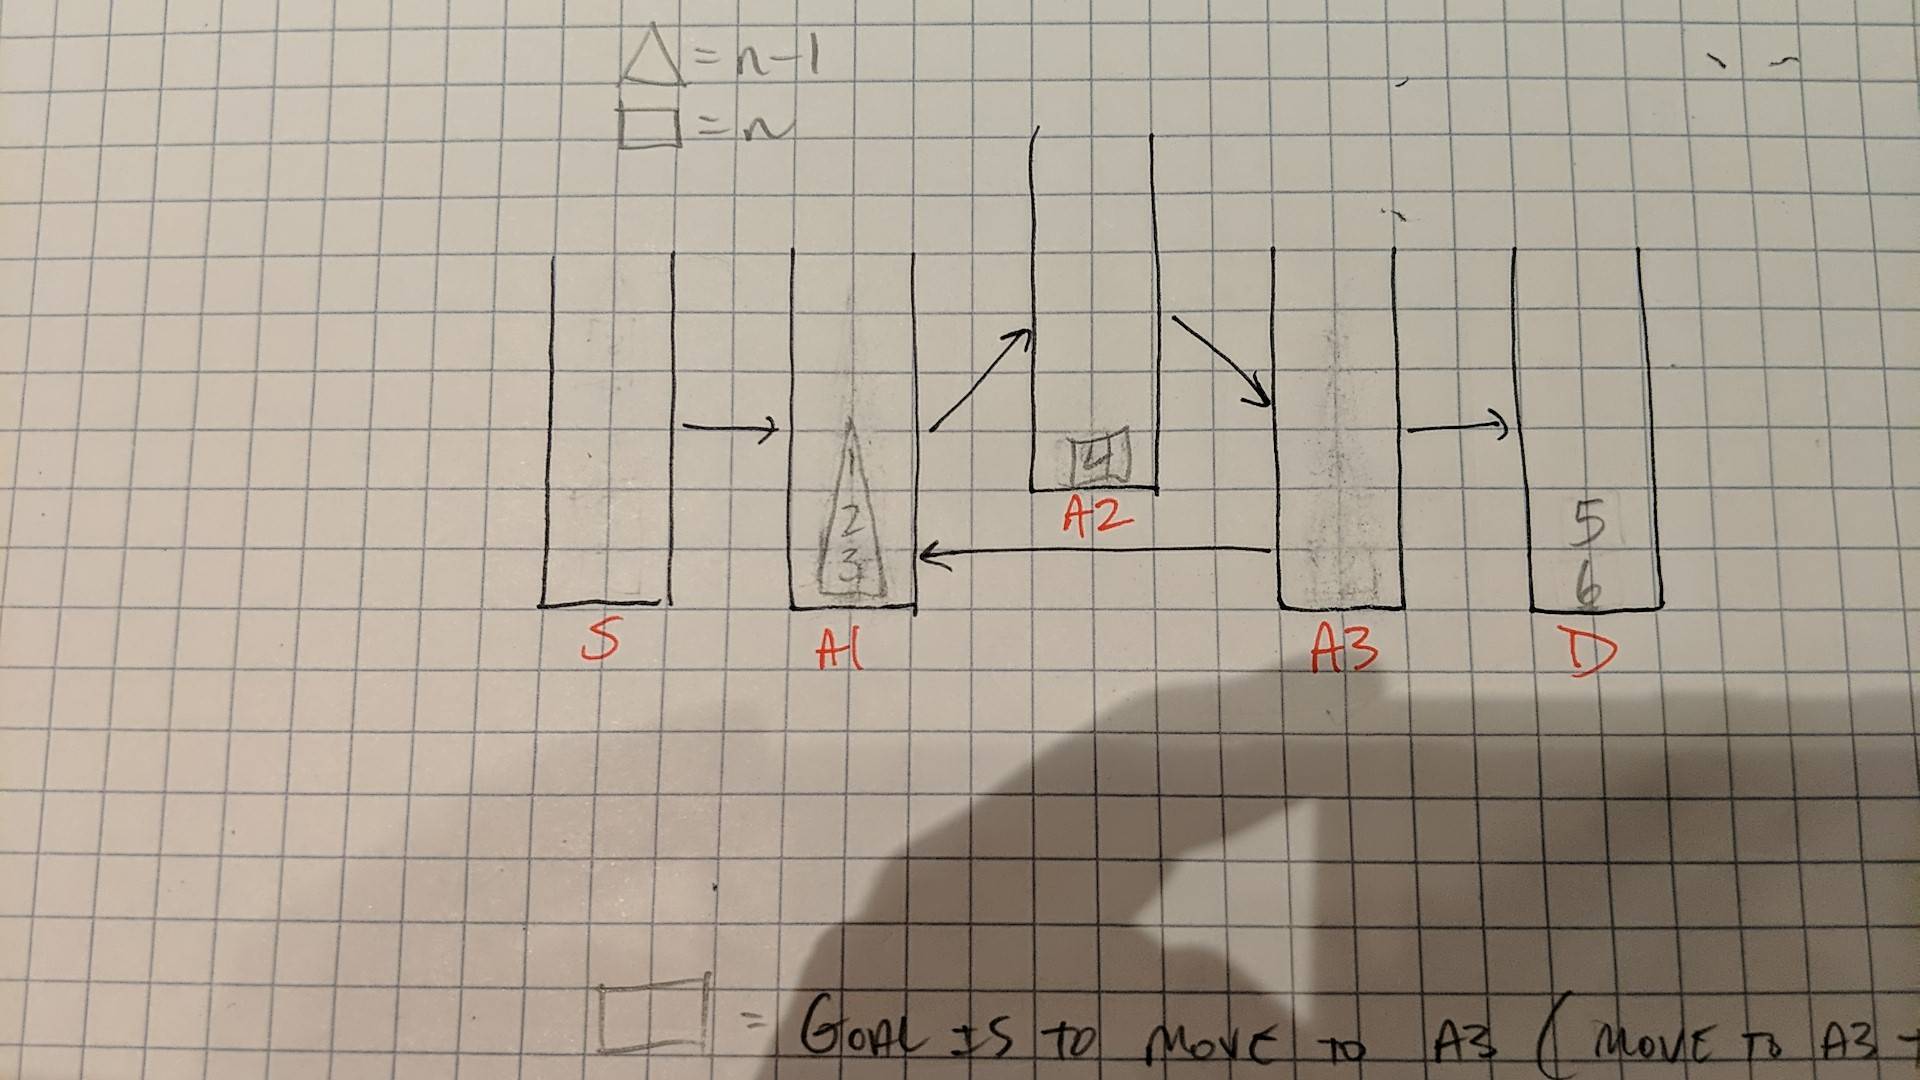 △ = n-1
□ = n
1
2
3
4
A2
5
6
S
A1
A3
D
□ = GOAL IS TO MOVE TO A3 (MOVE TO A3